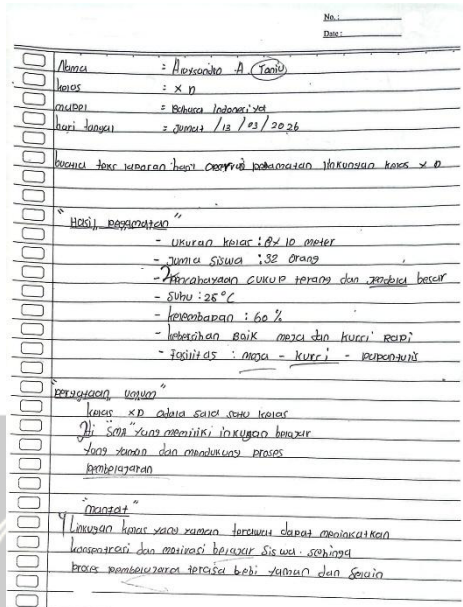 No. :
Date :
Nama : Aloysandro A. Taniu
kelas : X D
mapel : Bahasa Indonesiya
hari tangal : Jumat / 13 / 03 / 2026
buatla teks laporan hasil pengamatan linkungan kelas X D
" Hasil pegamatan "
- Ukuran kelas : 8 x 10 meter
- Jumla siswa : 32 orang
- Pencahayaan cukup terang dan jendela besar
- Suhu : 26°C
- kelembapan : 60 %
- kebersihan Baik meja dan kursi Rapi
- Fasilitas : meja - kursi - papantulis
" peryataan umum "
kelas XD adala sala satu kelas
di SMA yang memiliki inkugan belajar
yang yaman dan mendukung proses
pembelajaran
" manfat "
Linkugan kelas yang yaman terawat dapat meninkatkan
konsentrasi dan motivasi belajar siswa. sehinga
proses pembelajaran terasa lebi yaman dan